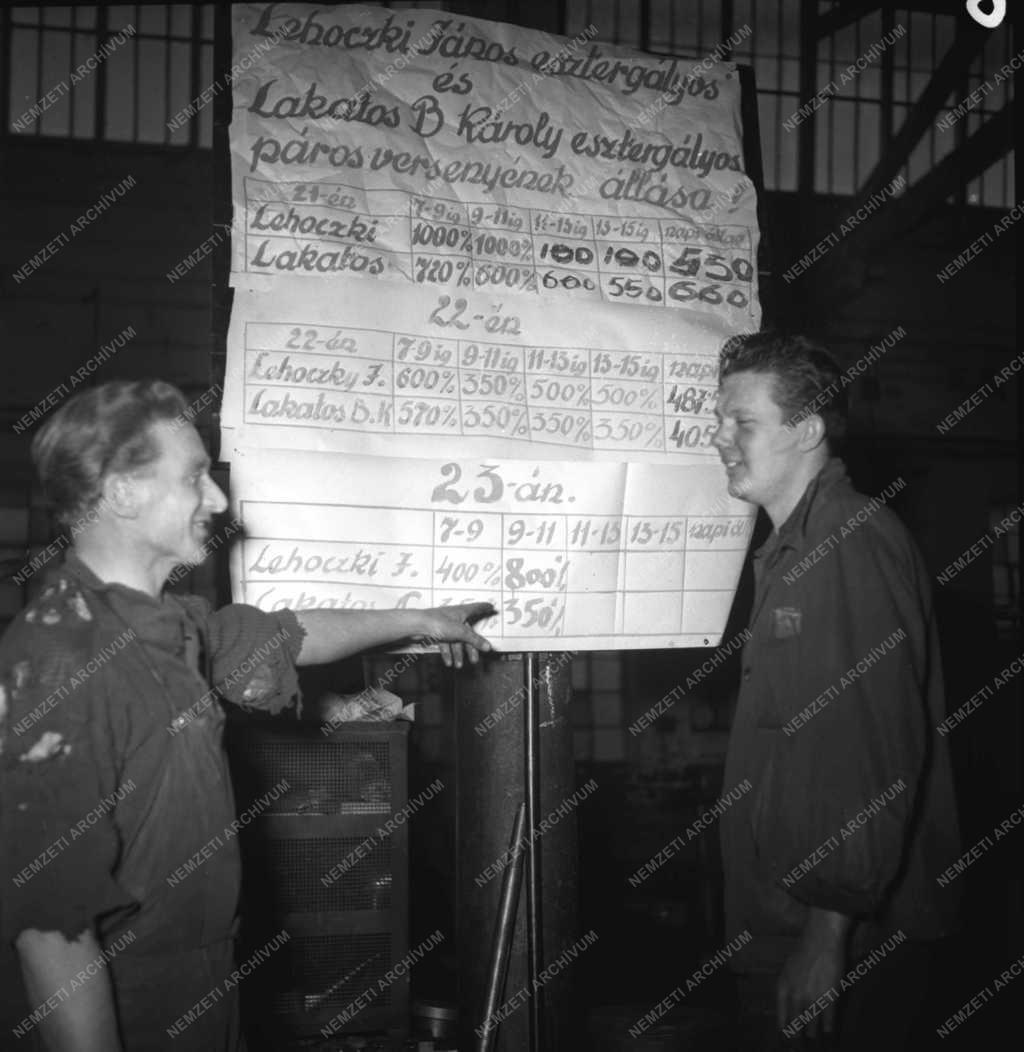 Lehoczki János esztergályos
és
Lakatos B Károly esztergályos
páros versenyének állása !
21-én 7-9ig 9-11ig 11-13ig 13-15ig napi átlag
Lehoczki 1000% 1000% 100 100 550
Lakatos 720% 600% 600 550 660
22-én
22-én 7-9ig 9-11ig 11-13ig 13-15ig napi
Lehoczky J. 600% 350% 500% 500% 487%
Lakatos B.K 570% 350% 350% 350% 405
23-án.
7-9 9-11 11-13 13-15 napi
Lehoczki J. 400% 800%
Lakatos 350%
NEMZETI ARCHÍVUM